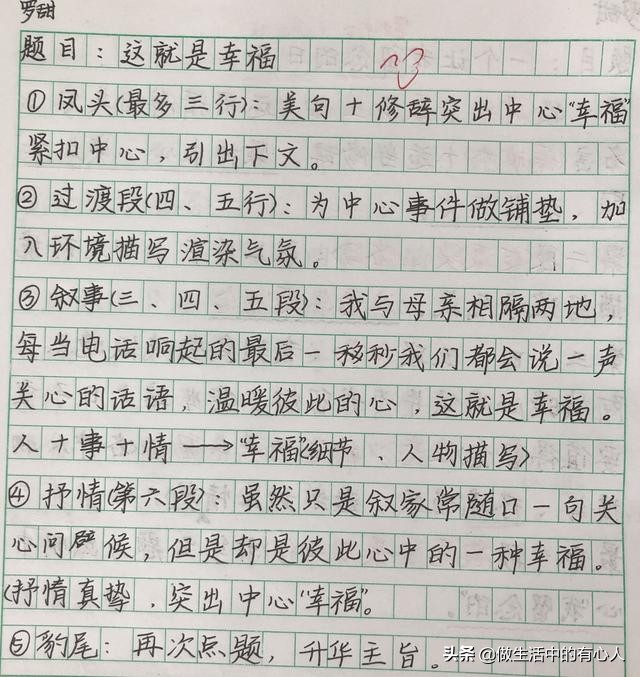 罗甜
题目：这就是幸福
①凤头(最多三行)：美句十修辞突出中心“幸福”
紧扣中心，引出下文。
②过渡段(四、五行)：为中心事件做铺垫，加
入环境描写渲染气氛。
③叙事(三、四、五段)：我与母亲相隔两地，
每当电话响起的最后一移秒我们都会说一声
关心的话语，温暖彼此的心，这就是幸福。
人十事十情→“幸福”(细节、人物描写)
④抒情(第六段)：虽然只是叙家常随口一句关
心问候，但是却是彼此心中的一种幸福。
(抒情真挚，突出中心“幸福”。
⑤豹尾：再次点题，升华主旨。
头条 @做生活中的有心人